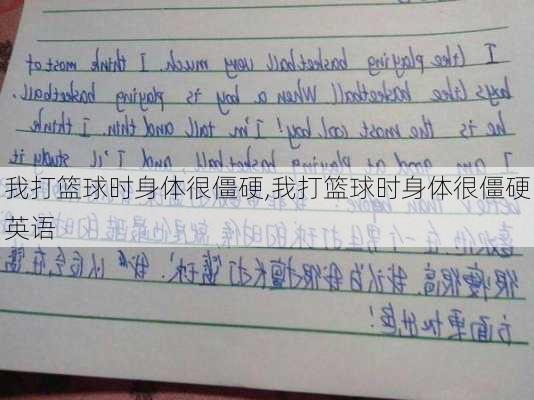 I like playing basketball very much, I think most of
boys like basketball! When a boy is playing basketball.
he is the most cool boy! I'm tall and thin. I think
I am good at playing basketball, and I'll study it
我打篮球时身体很僵硬,我打篮球时身体很僵硬
英语
很瘦很高,我认为我很擅长打篮球!我 以后会在
方面更加出色!